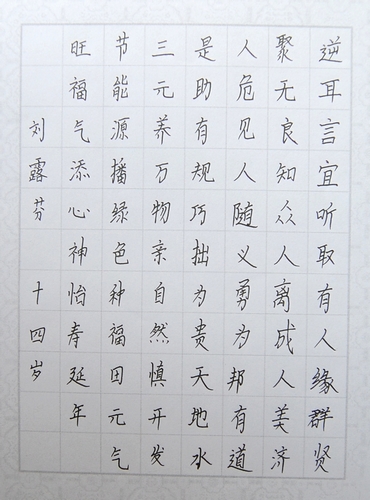 逆耳言宜听取有人缘群贤
聚无良知众人离成人美济
人危见人随义勇为邦有道
是助有规巧拙为贵天地水
三元养万物亲自然慎开发
节能源播绿色种福田元气
旺福气添心神怡寿延年
刘露芬 十四岁